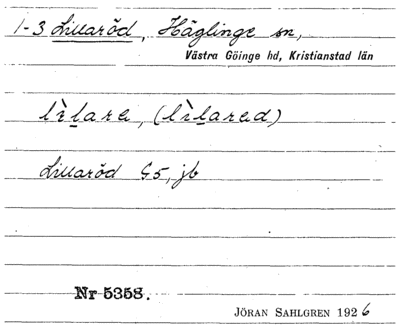 1-3 Lillaröd, Häglinge sn,
Västra Göinge hd, Kristianstad län
lìlara, (lìlared)
Lillaröd G5, jb
Nr 5358.
JÖRAN SAHLGREN 1926